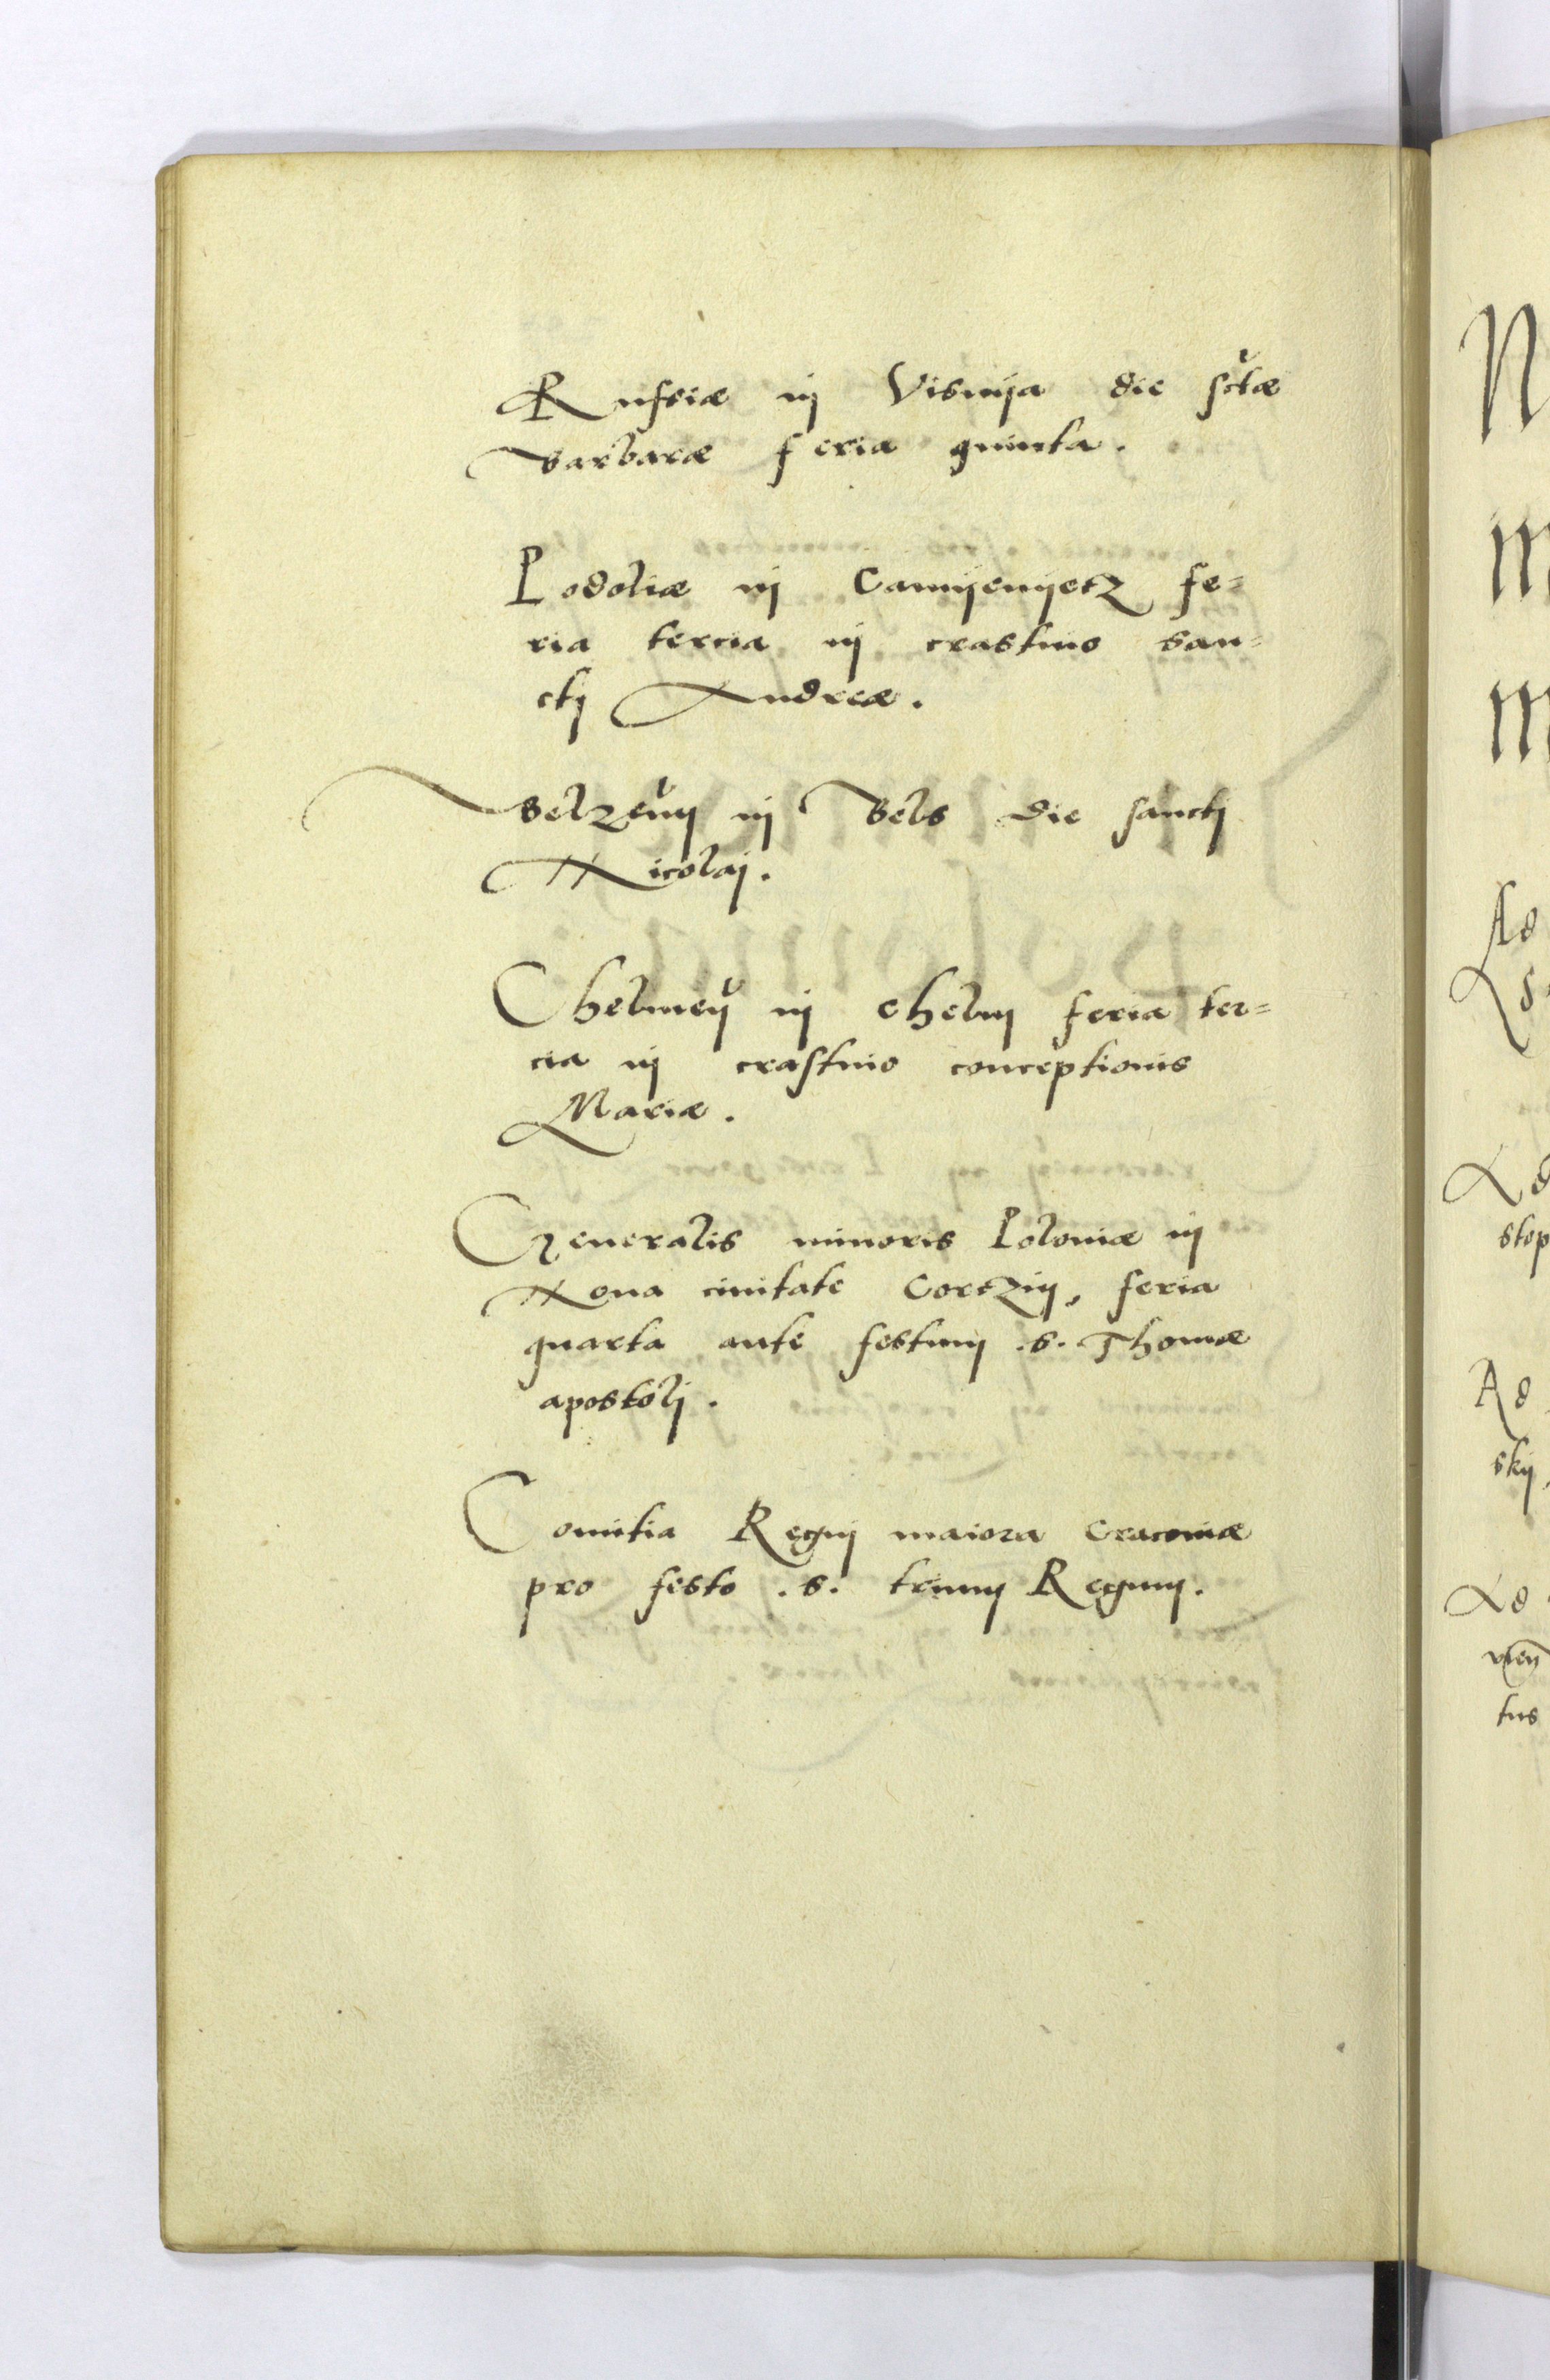 Russiæ in Visnija die sctæ
Barbaræ feria quinta.
Podoliæ in Camijenijetz fe=
ria tercia in crastino san=
cti Andreæ.
Belzen in Bels die sancti
Nicolaj.
Chelmen in Chelm feria ter=
cia in crastino conceptionis
Mariæ.
Generalis minoris Poloniæ in
Nova civitate Corczin, feria
quarta ante festum .s. Thomæ
apostoli.
Comitia Regni maiora Cracoviæ
pro festo .s. trium Regum.
Ad
Ad
stop
Ad
skij
Ad
tus